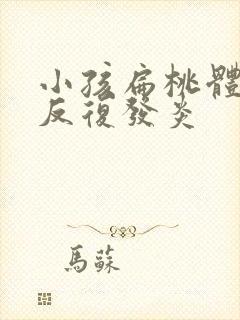 小孩扁桃體
反復發炎
馬蘇